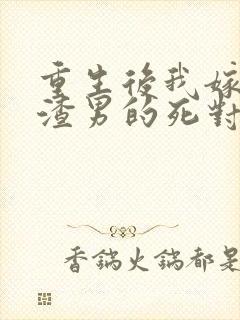 重生後我嫁
渣男的死對
香鍋火鍋都是